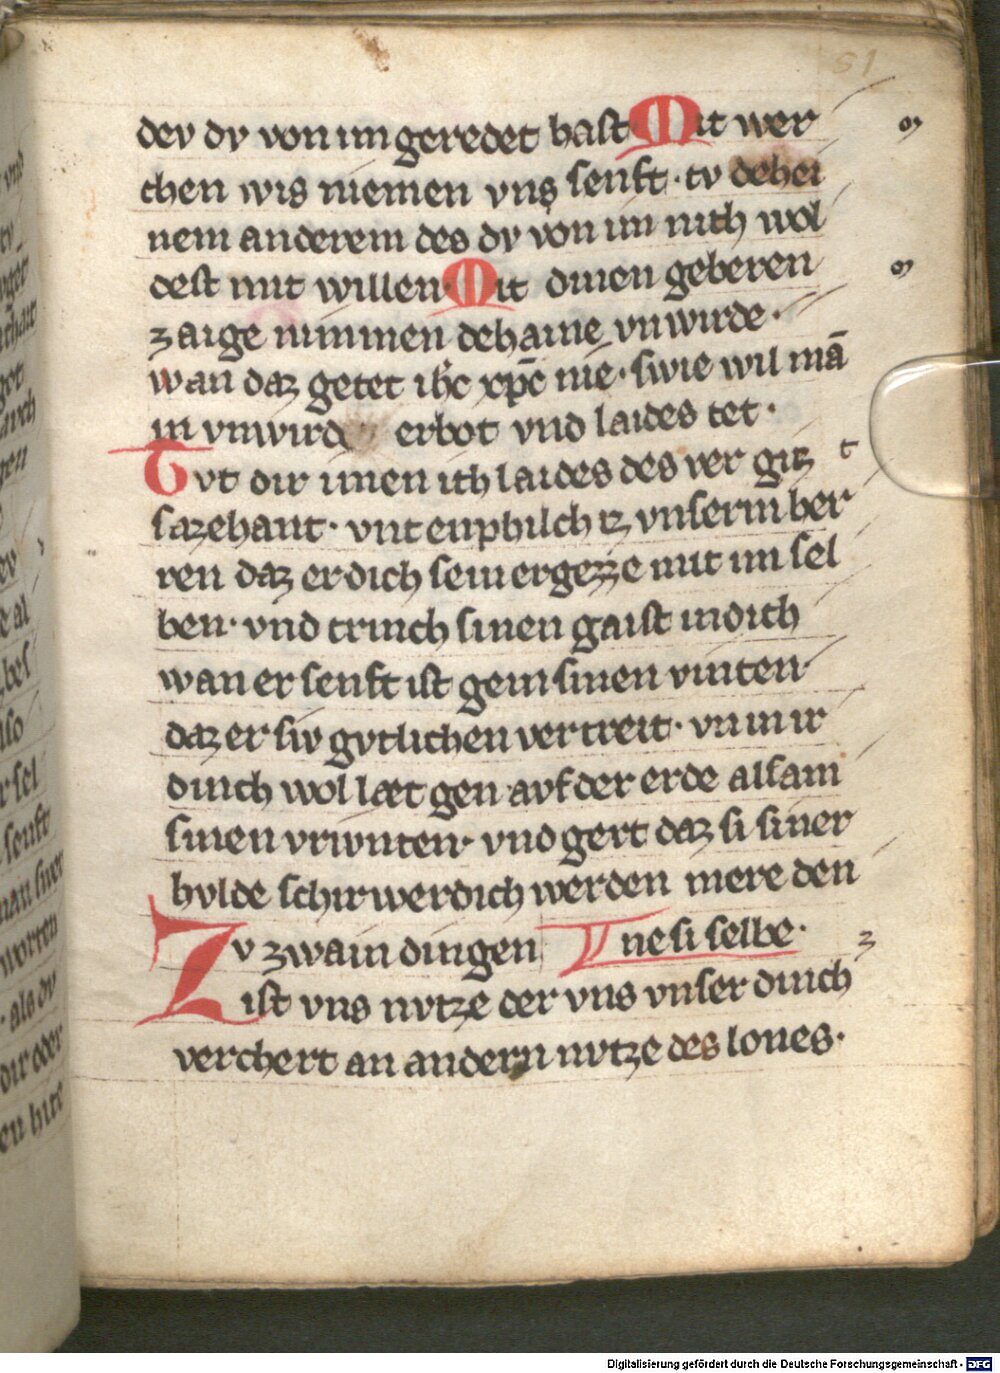 51
dev dv von im geredet hast Mit wer
chen wis niemen vns senft · tv dehei
nem anderem des dv von im nith wol
dest mit willen · Mit dinen geberen
zaige nimmen dehaine vnwirde ·
wan daz getet ihc xpc nie · swie wil mā
in vnwird erbot vnd laides tet ·
Tvt dir imen ich laides des ver giz t
sazehant · vnt enphilch iz vnserm her
ren daz er dich sein ergezze mit im sel
ben · vnd trinch sinen gaist in dich
wan er senft ist gein sinen vinten
daz er siv gvtlichen vertreit · vn in ir
dinch wol læt gen avf der erde alsam
sinen vrivnten · vnd gert daz si siner
hvlde schir werdich werden mere den
Zv zwain dingen ne si selbe · z
ist vns nvtze der vns vnser dinch
verchert an andern nvtze des lones ·
Digitalisierung gefördert durch die Deutsche Forschungsgemeinschaft - DFG